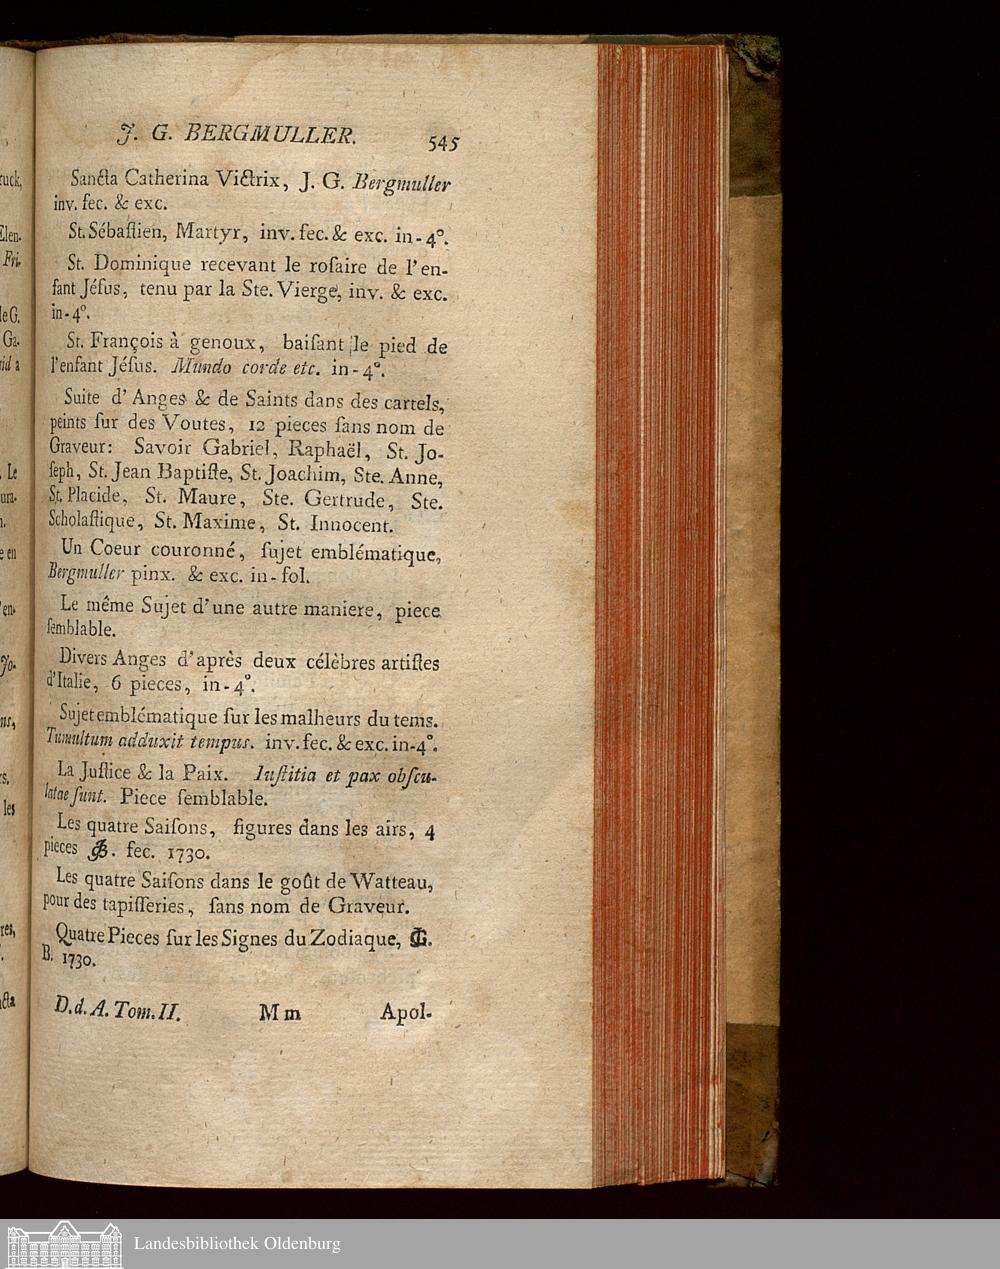 J. G. BERGMULLER. 545
Sancta Catherina Victrix, J. G. Bergmuller
inv. fec. & exc.
St. Sébaſtien, Martyr, inv. fec. & exc. in-4°.
St. Dominique recevant le roſaire de l'en-
fant Jéſus, tenu par la Ste. Vierge, inv. & exc.
in-4°.
St. François à genoux, baiſant le pied de
l'enfant Jéſus. Mundo corde etc. in-4°.
Suite d'Anges & de Saints dans des cartels,
peints ſur des Voutes, 12 pieces ſans nom de
Graveur: Savoir Gabriel, Raphaël, St. Jo-
ſeph, St. Jean Baptiſte, St. Joachim, Ste. Anne,
St. Placide, St. Maure, Ste. Gertrude, Ste.
Scholaſtique, St. Maxime, St. Innocent.
Un Coeur couronné, ſujet emblématique,
Bergmuller pinx. & exc. in-fol.
Le même Sujet d'une autre maniere, piece
ſemblable.
Divers Anges d'après deux célèbres artiſtes
d'Italie, 6 pieces, in-4°.
Sujet emblématique ſur les malheurs du tems.
Tumultum adduxit tempus. inv. fec. & exc. in-4°.
La Juſtice & la Paix. Iuſtitia et pax obſcu-
latae ſunt. Piece ſemblable.
Les quatre Saiſons, figures dans les airs, 4
pieces . fec. 1730.
Les quatre Saiſons dans le goût de Watteau,
pour des tapiſſeries, ſans nom de Graveur.
Quatre Pieces ſur les Signes du Zodiaque, G.
B. 1730.
D. d. A. Tom. II. Mm Apol-
Landesbibliothek Oldenburg